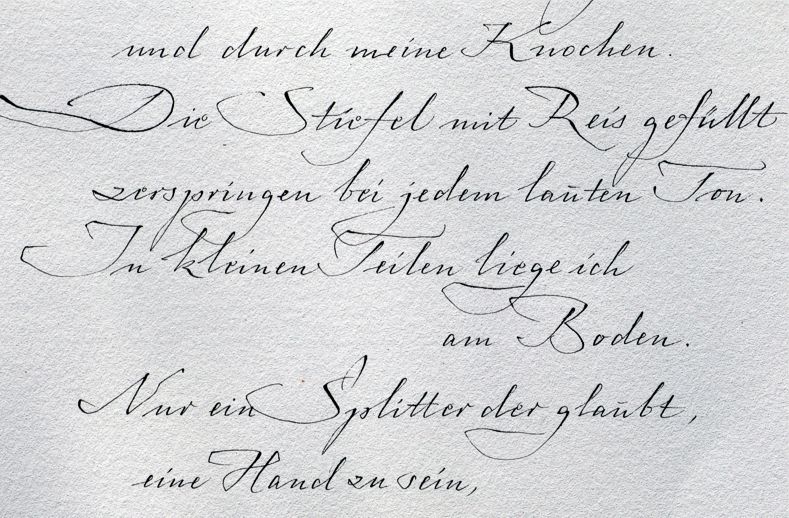 und durch meine Knochen.
Die Stiefel mit Reis gefüllt
zerspringen bei jedem lauten Ton.
In kleinen Teilen liege ich
am Boden.
Nur ein Splitter der glaubt,
eine Hand zu sein,